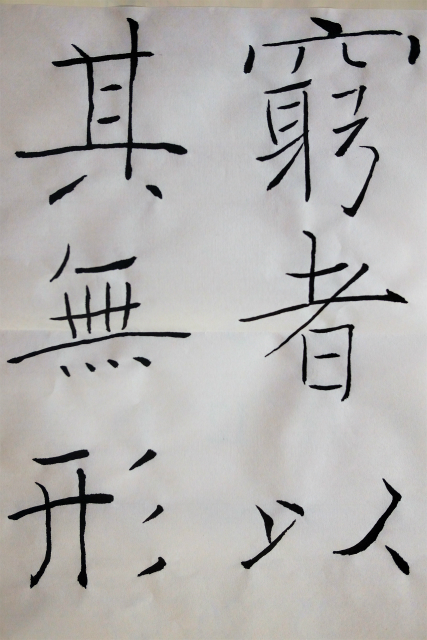 窮者以
其無形